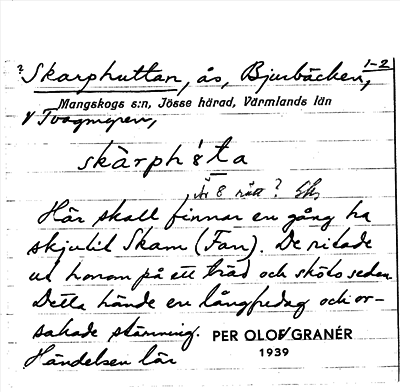 ? Skarphuttan, ås, Bjurbäcken, 1-2
Mangskogs s:n, Jösse härad, Värmlands län
v Tvägmyren,
skàrph 8̍ta
är 8 rätt?
Här skall finnar en gång ha
skjutit Skam (Fan). De ritade
ut honom på ett träd och sköto sedan.
Detta hände en långfredag och or-
sakade stämning.
PER OLOF GRANÉR
1939
Händelsen lär